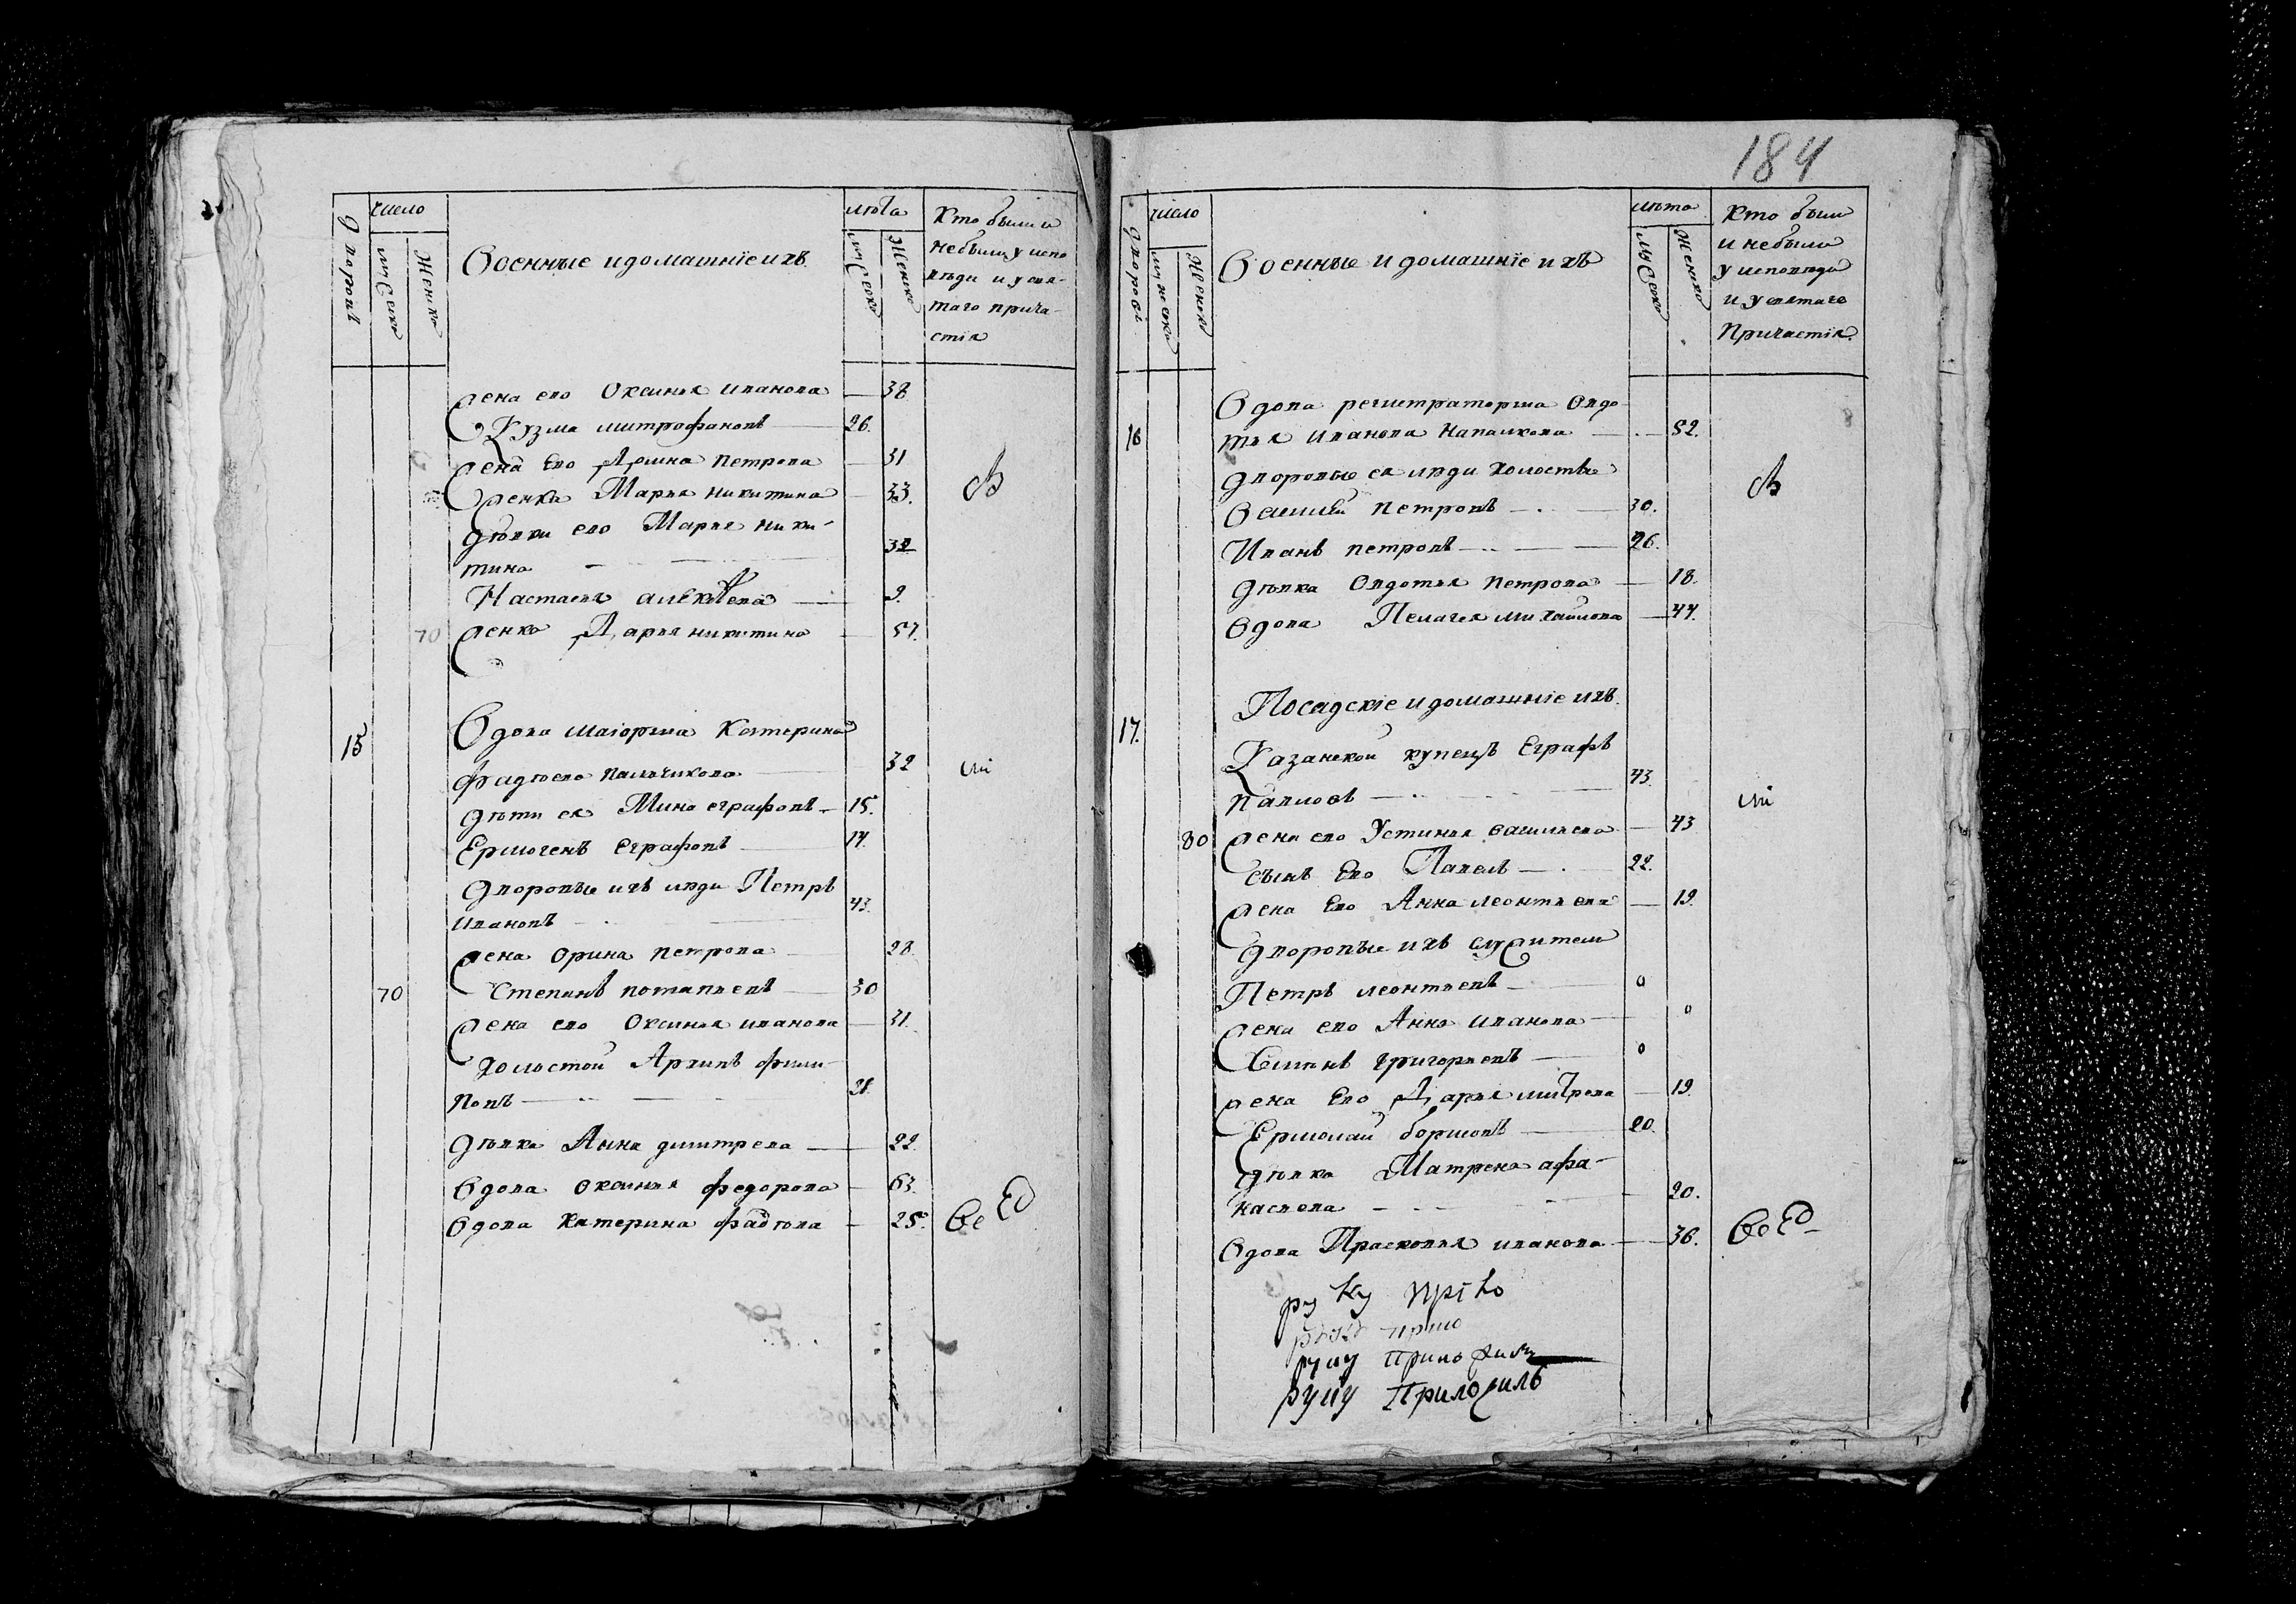 184
дворовъ
число
мужеска
женска
Военные и домашнїе ихъ
лѣта
мужеска
женска
Кто были и
не были у испо
вѣди и у свя-
таго прича-
стїя
жена ево Оксинья иванова — 38
Кузма митрофановъ 26.
жена Ево Арина петрова 31
женка Марья никитина 33.
дѣвки ево Марья ники-
тина 32
Настасья алеѯѣева 9.
70 женка Дарья никитина 57.
15 Вдова маіорша Катерина
фадѣева 32
дѣти ея Мина еграфовъ 15.
Ермогенъ Еграфовъ 14.
дворовыя ихъ люди Петръ
ивановъ 43.
жена орина петрова 28.
70 Степанъ потапьевъ 30
жена ево Оксинья иванова 31.
Холостой Архипъ фили-
повъ 28.
дѣвка Анна димитрева 22.
Вдова оксинья федорова 63.
Вдова катерина фадѣева 25.
дворовъ
число
мужеска
женска
Военные и домашнїе ихъ
лѣта
мужеска
женска
Кто были
и небыли
у исповѣди
и у святаго
Причастїя.
Вдова регистраторша Овдо
16 тья иванова 52.
дворовые ея люди холосты
Василей петровъ 30.
Иванъ петровъ 26.
дѣвка Овдотья петрова 18.
Вдова Пелагея михайлова 44.
Посадскїе и домашнїе ихъ.
17. Казанской купецъ Еграфъ
павловъ 43.
80 жена ево Устинья василева 43
сынъ Ево Павелъ 22.
жена Ево Анна леонтьева 19.
дворовые ихъ служители
Петръ леонтьевъ 0
жена ево Анна иванова 0
григорьевъ 0
жена Ево Дарья митрева 19.
Ермолай борисовъ 20.
дѣвка Матрена афа-
насьева 20.
Вдова Прасковья иванова 36.
руку прїло
руку прило
руку приложилъ
руку Приложилъ